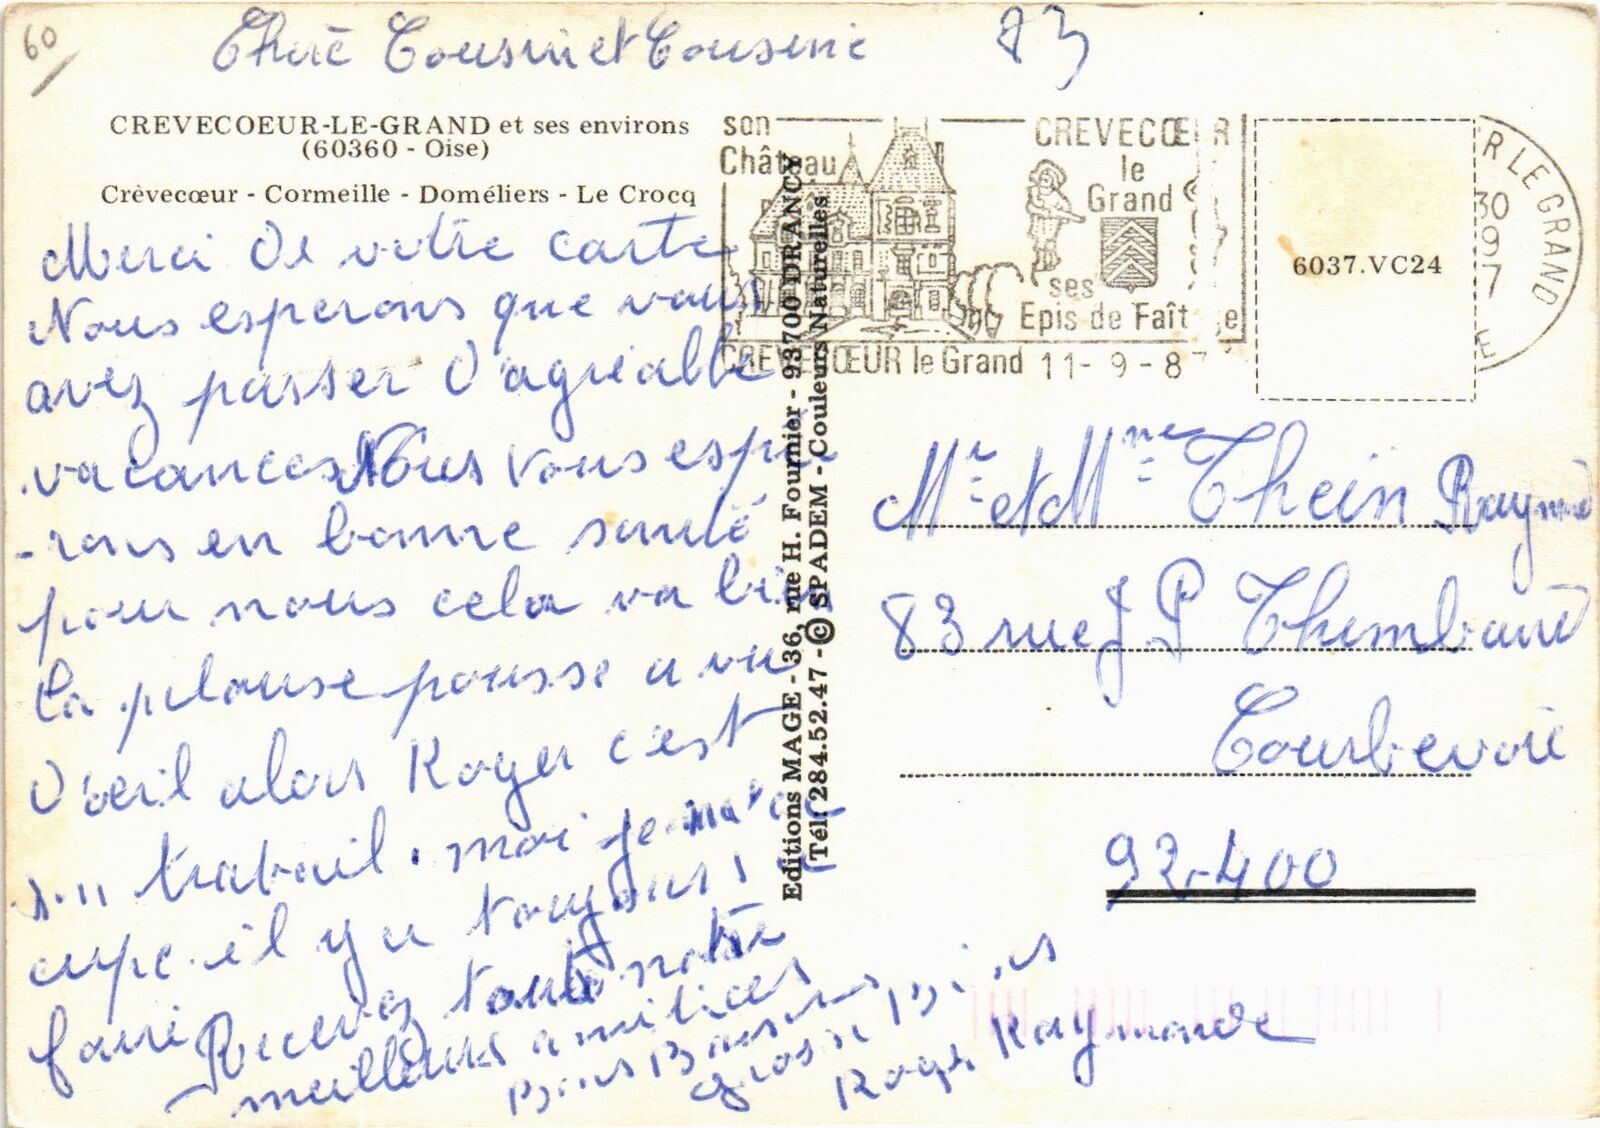 60
Chère Cousin et Cousine
83
CREVECOEUR-LE-GRAND et ses environs
(60360 - Oise)
Crèvecœur - Cormeille - Doméliers - Le Crocq
Merci de votre carte
Nous esperons que vous
avez passer d'agréable
vacances Nous vous espé
-rons en bonne santé
pour nous cela va bien
La pelouse pousse a vu
d'oeil alors Roger c'est
travail. moi je m'oc
cupe. il y a toujours a
faire
Recevez toute notre
meilleurs amitiées
Bons Baisers
gros Bisous
Roger Raymonde
Editions MAGE - 36, rue H. Fournier - 93700 DRANCY
Tél. 284.52.47 - © SPADEM - Couleurs Naturelles
son
Château
CREVECŒUR
le
Grand
ses
Epis de Faît e
CREVECŒUR le Grand 11-9-87
R LE GRAND
30
9
7
E
6037.VC24
Mr et Mme Thein Raymond
83 rue J P Thimbaud
Courbevoie
92-400